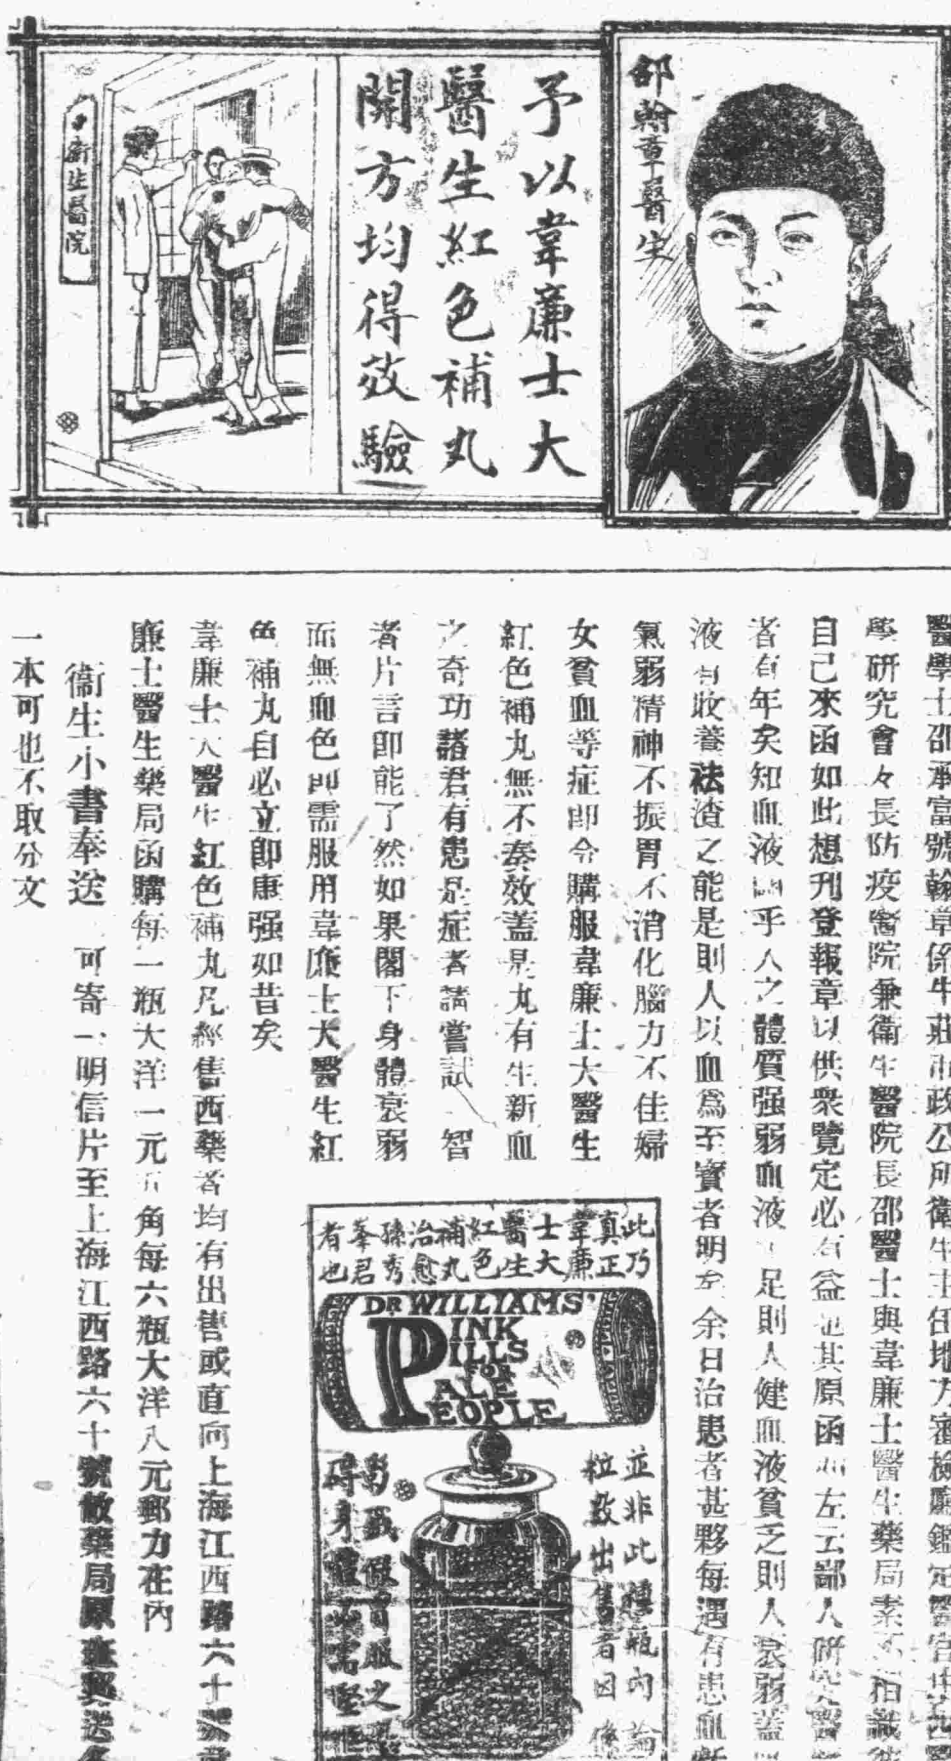 邵翰章醫生
予以韋廉士大
醫生紅色補丸
開方均得效驗
衛生醫院
醫學士邵承富號翰章係牛莊市政公所衛生主任地方審檢廳鑑定醫官
學硏究會々長防疫醫院兼衛生醫院長邵醫士與韋廉士醫生藥局素不相識
自己來函如此想刊登報章以供衆覽定必有益也其原函如左云鄙人硏究醫
者有年矣知血液關乎人之體質强弱血液足則人健血液貧乏則人衰弱蓋
液有收養祛渣之能是則人以血爲至寶者明矣余日治患者甚夥每遇有患血
氣弱精神不振胃不消化腦力不佳婦
女貧血等症即令購服韋廉士大醫生
紅色補丸無不奏效蓋是丸有生新血
之奇功諸君有患是症者請嘗試 智
者片言即能了然如果閣下身體衰弱
而無血色即需服用韋廉士大醫生紅
色補丸自必立卽康强如昔矣
韋廉士大醫生紅色補丸凡經售西藥者均有出售或直向上海江西路六十號韋
廉士醫生藥局函購每一瓶大洋一元五角每六瓶大洋八元郵力在內
衛生小書奉送 可寄一明信片至上海江西路六十號敝藥局原班郵送
一本可也不取分文
此乃
真正
韋廉
士大
醫生
紅色
補丸
治愈
孫秀
峯君
者也
DR WILLIAMS'
PINK
PILLS
FOR
PALE
PEOPLE
並非此種瓶內論
粒數出售者因係
影戤假冒服之
碍身體